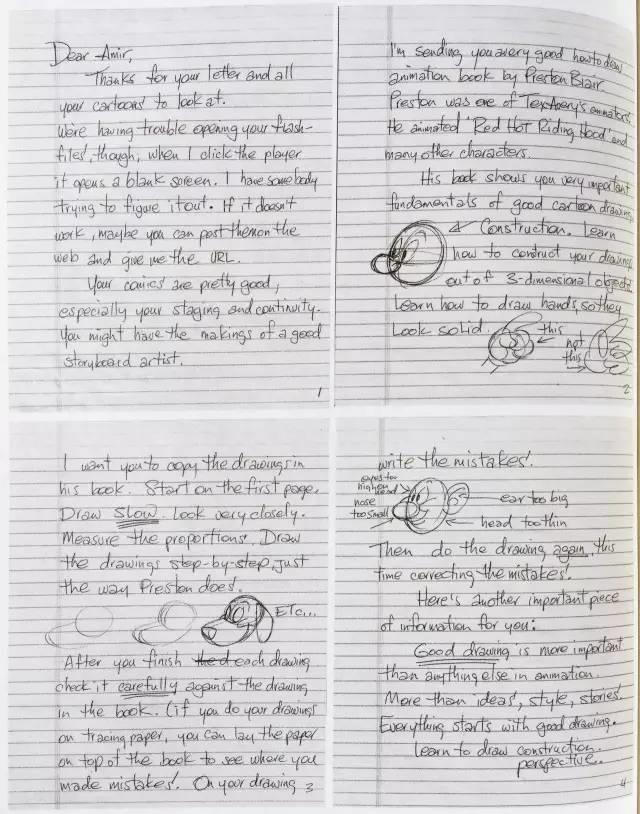 Dear Amir,
Thanks for your letter and all
your cartoons to look at.
We're having trouble opening your flash-
files, though, when I click the player
it opens a blank screen. I have somebody
trying to figure it out. If it doesn't
work, maybe you can post them on the
web and give me the URL.
Your comics are pretty good,
especially your staging and continuity.
You might have the makings of a good
storyboard artist.
1
I'm sending you a very good how to draw
animation book by Preston Blair.
Preston was one of Tex Avery's animators.
He animated 'Red Hot Riding Hood' and
many other characters.
His book shows you very important
fundamentals of good cartoon drawing
Construction. Learn
how to construct your drawings
out of 3-dimensional objects.
Learn how to draw hands, so they
Look solid.
this
not
this
2
I want you to copy the drawings in
his book. Start on the first page.
Draw SLOW. Look very closely.
Measure the proportions. Draw
the drawings step-by-step, just
the way Preston does.
ETC...
After you finish the d each drawing
check it carefully against the drawing
in the book. (if you do your drawings
on tracing paper, you can lay the paper
on top of the book to see where you
made mistakes. On your drawing
3
write the mistakes.
eyes too
high on
head
nose
too small
ear too big
head too thin
Then do the drawing again, this
time correcting the mistakes.
Here's another important piece
of information for you:
Good drawing is more important
than anything else in animation.
More than ideas, style, stories.
Everything starts with good drawing.
Learn to draw construction,
perspective..
4